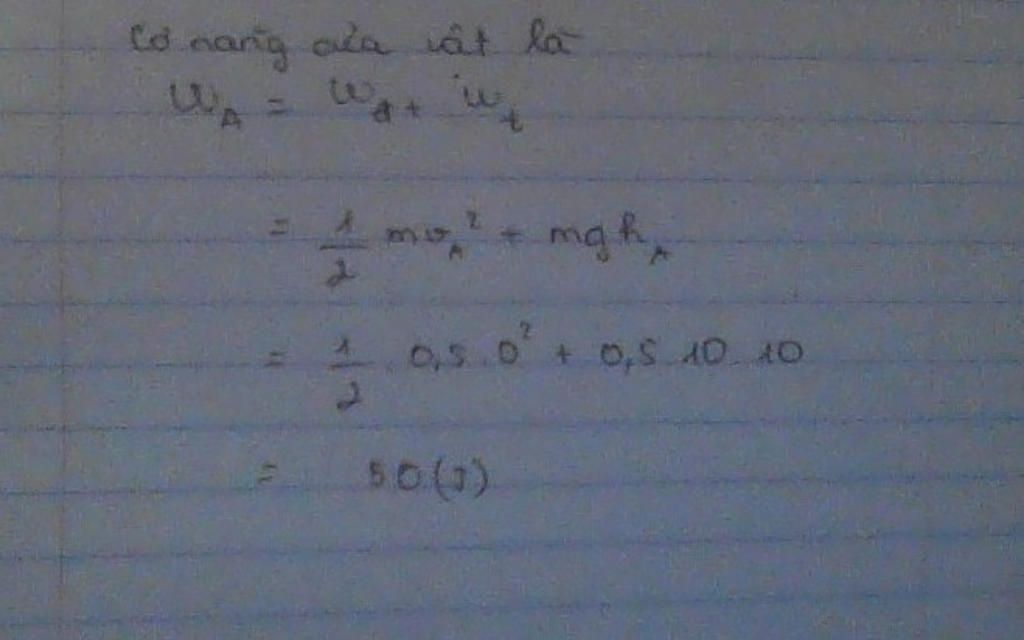 Cơ năng của vật là
W_A = W_đ + W_t
= 1/2 mv_A² + mgh_A
= 1/2 . 0,5 . 0² + 0,5 . 10 . 10
= 50 (J)